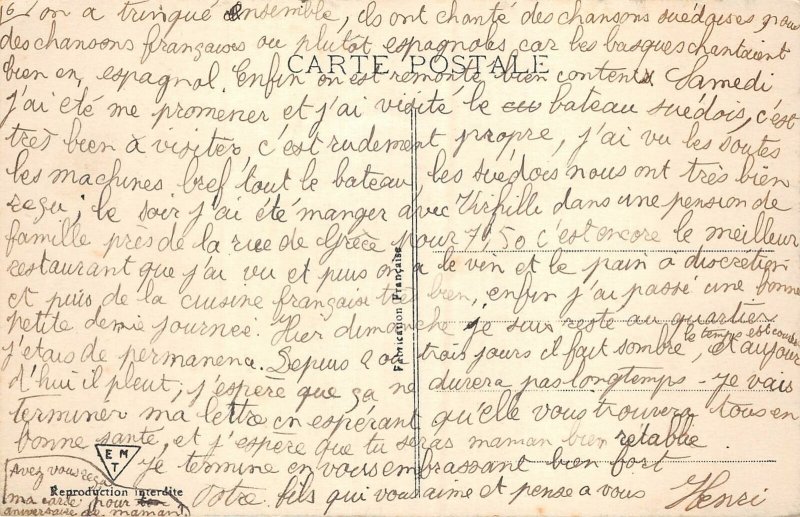 16 on a trinqué ensemble, ils ont chanté des chansons suédoises nous
des chansons françaises ou plutôt espagnoles car les basques chantaient
bien en espagnol. Enfin on est remonté bien content Samedi
CARTE POSTALE
j'ai été me promener et j'ai visité le bateau suédois, c'est
très bien à visiter, c'est rudement propre, j'ai vu les soutes
les machines bref tout le bateau, les suédois nous ont très bien
reçu; le soir j'ai été manger avec dans une pension de
famille près de la rue de Grèce pour 7,50 c'est encore le meilleur
restaurant que j'ai vu et puis on a le vin et le pain a discretion
et puis de la cuisine française très bien, enfin j'ai passé une bonne
petite demie journée. Hier dimanche je suis resté au quartier
j'étais de permanence. Depuis 2 ou trois jours il fait sombre, le temps est couvert et aujour
d'hui il pleut; j'espère que ça ne durera pas longtemps - Je vais
terminer ma lettre en espérant qu'elle vous trouvera tous en
bonne santé, et j'espère que tu seras maman bien rétablie
Je termine en vous embrassant bien fort
Votre fils qui vous aime et pense a vous Henri
Avez vous reçu
ma carte pour
aniversaire de maman?
EMT
Reproduction interdite
Fabrication Française